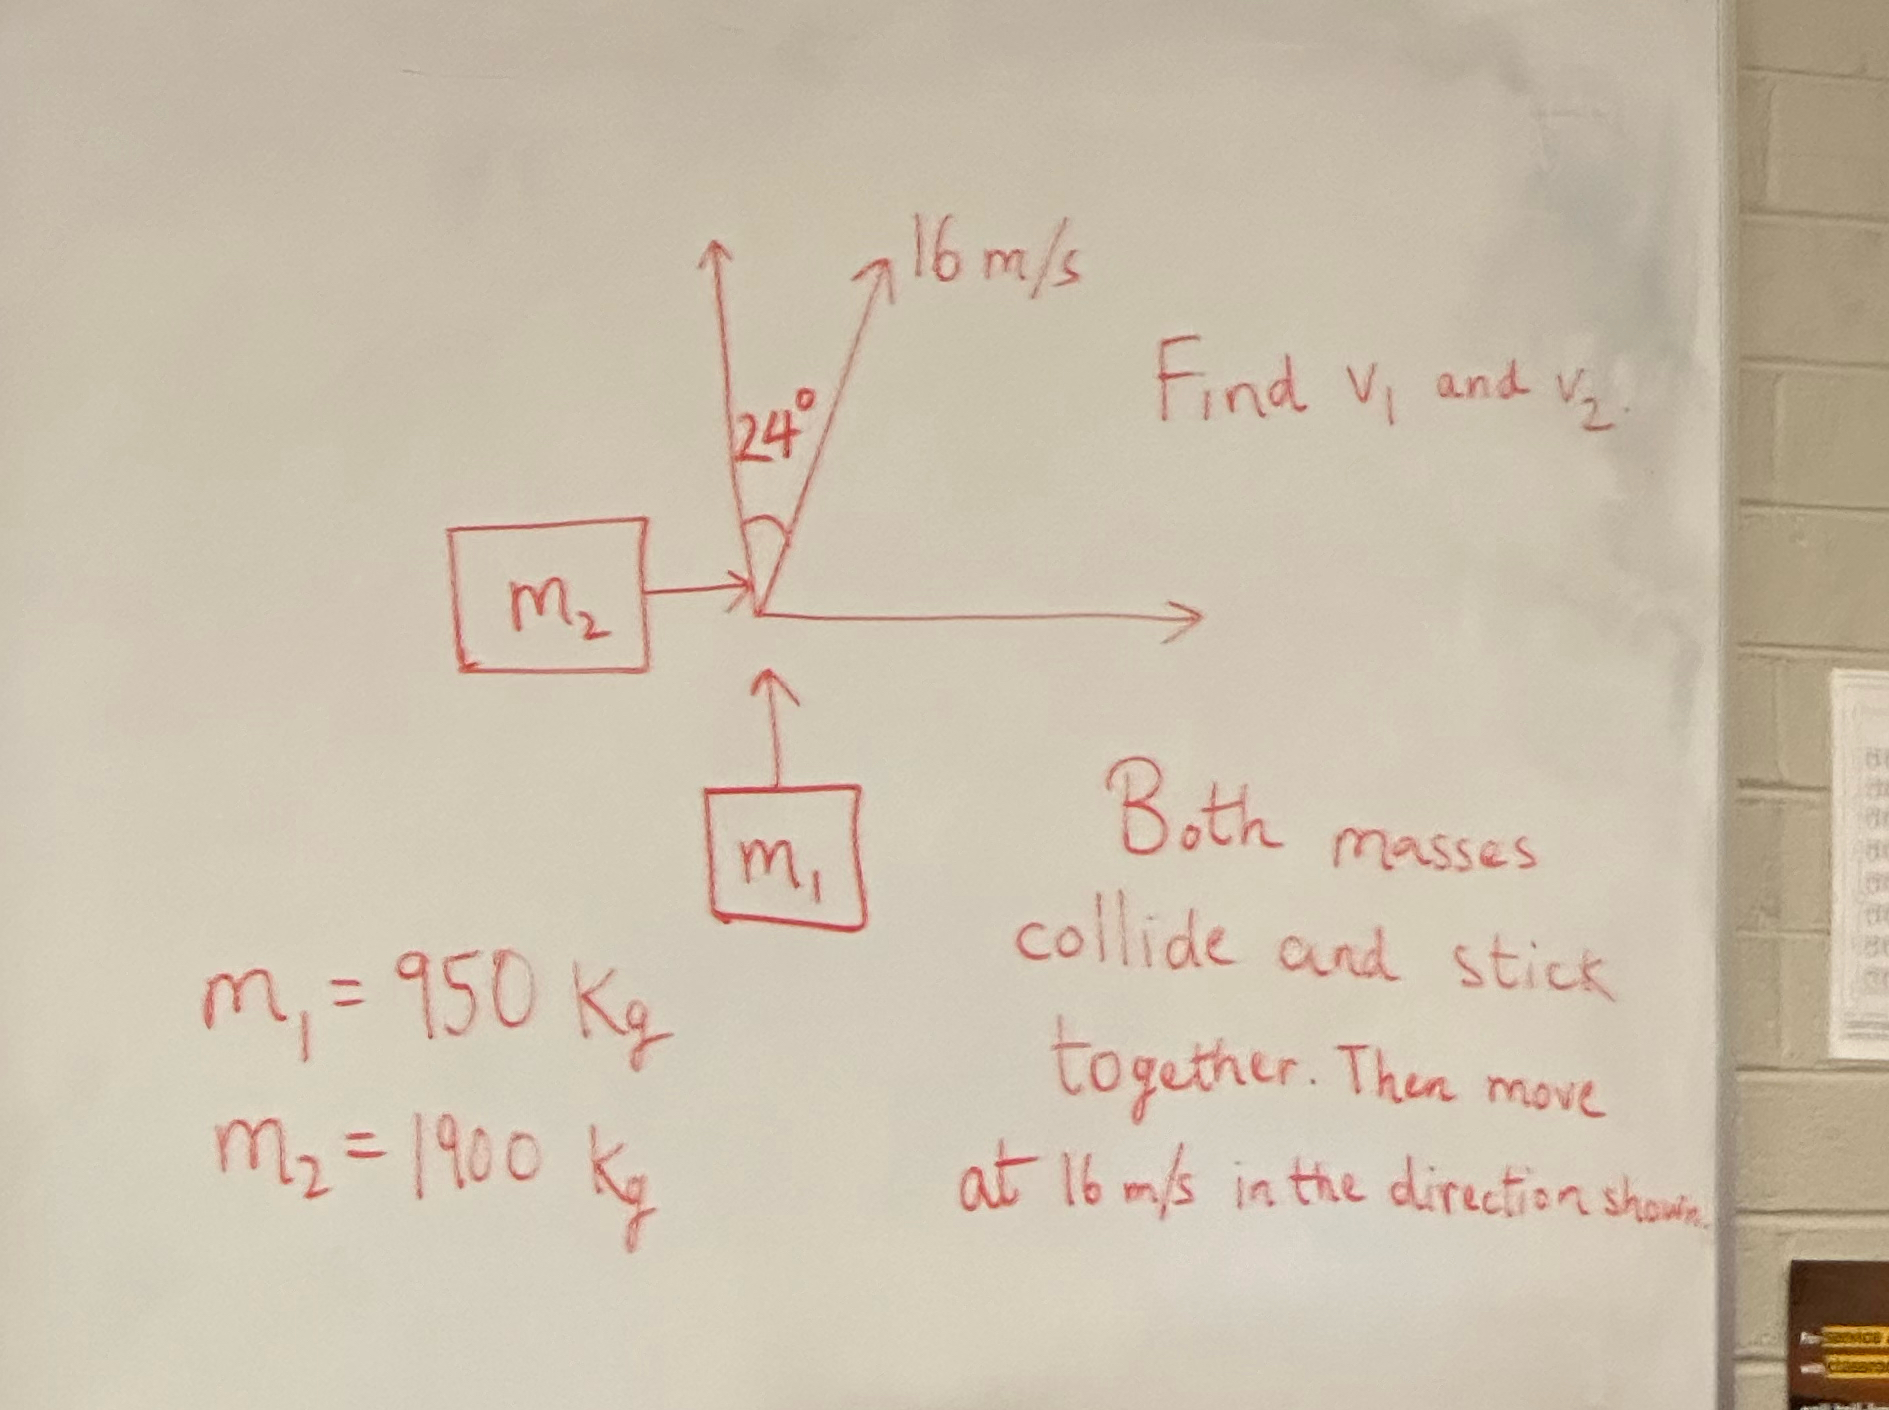 16 m/s
24°
Find v₁ and v₂.
m₂
m₁
Both masses
collide and stick
together. Then move
at 16 m/s in the direction shown.
m₁ = 950 Kg
m₂ = 1900 Kg
service